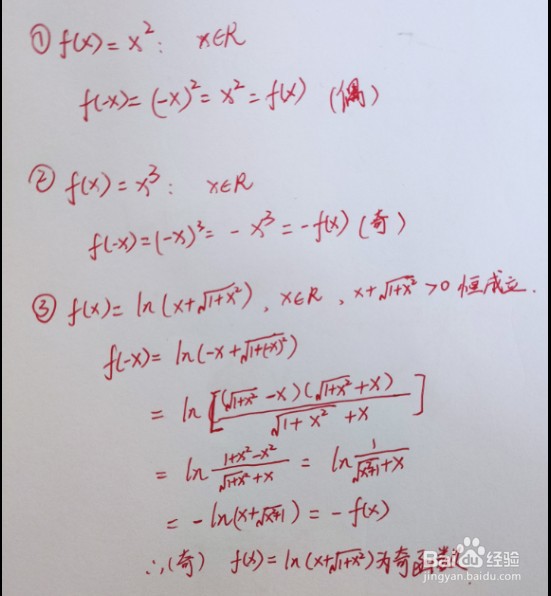 ① f(x) = x²: x∈R
f(-x) = (-x)² = x² = f(x) (偶)
② f(x) = x³: x∈R
f(-x) = (-x)³ = - x³ = -f(x) (奇)
③ f(x) = ln(x+√(1+x²)), x∈R, x+√(1+x²) >0 恒成立.
f(-x) = ln(-x+√(1+(-x)²))
= ln[(√(1+x²) -x)(√(1+x²) +x) / (√(1+x²) +x)]
= ln (1+x²-x²)/(√(1+x²)+x) = ln 1/(√(x²+1)+x)
= -ln(x+√(x²+1)) = -f(x)
∴(奇) f(x) = ln(x+√(1+x²))为奇函数
Baidu 经验
jingyan.baidu.com